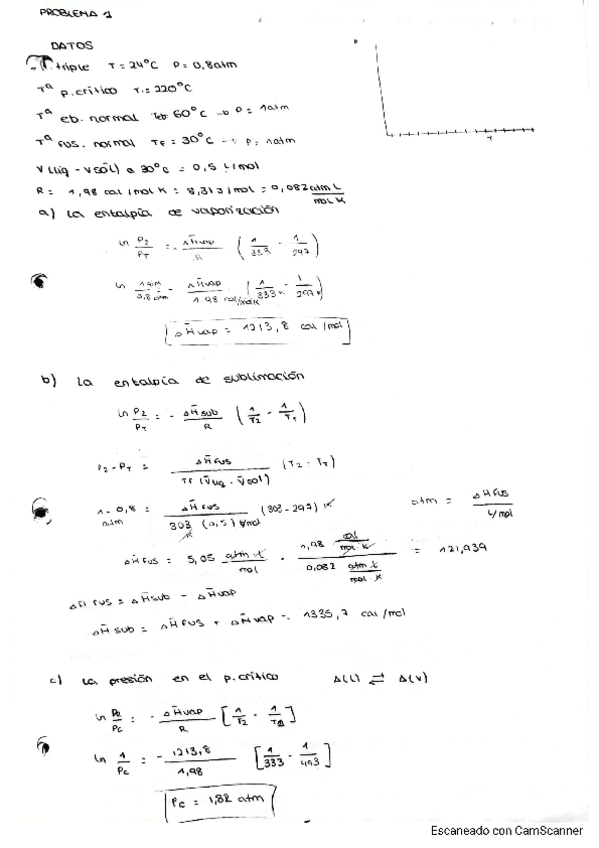 PROBLEMA 1
DATOS
T triple T = 24°C P = 0,8 atm
Tª p.crítico T = 220°C
Tª eb. normal Teb 60°C → P = 1 atm
Tª fus. normal TF = 30°C → P = 1 atm
V (líq - Vsól) a 30°C = 0,5 L/mol
R = 1,98 cal/mol K = 8,313 J/mol = 0,082 atm L / mol K
T
a) La entalpía de vaporización
ln P2/PT = - ΔHvap/R (1/333 - 1/297)
ln 1 atm/0,8 atm = - ΔHvap/1,98 cal/molK (1/333 K - 1/297 K)
ΔHvap = 1213,8 cal/mol
b) La entalpía de sublimación
ln P2/PT = - ΔHsub/R (1/T2 - 1/TT)
P2 - PT = ΔHfus / TF (Vliq - Vsol) (T2 - TT)
1 - 0,8 atm = ΔHfus / 303 K (0,5) L/mol (303 - 297) K atm = ΔHfus / L/mol
ΔHfus = 5,05 atm·L/mol · 1,98 cal/mol K / 0,082 atm L/mol K = 121,939
ΔHfus = ΔHsub - ΔHvap
ΔHsub = ΔHfus + ΔHvap = 1335,7 cal/mol
c) La presión en el p.crítico A(l) ⇌ A(v)
ln P2/PC = - ΔHvap/R [1/T2 - 1/T1]
ln 1/PC = - 1213,8/1,98 [1/333 - 1/493]
PC = 1,82 atm
Escaneado con CamScanner